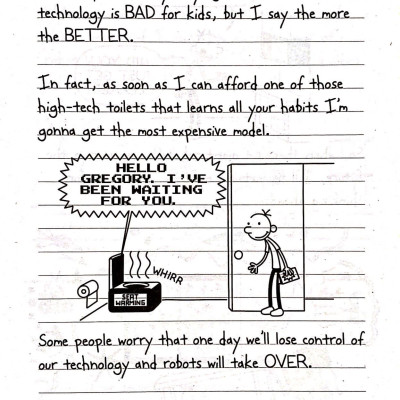 technology is BAD for kids, but I say the more
the BETTER.
In fact, as soon as I can afford one of those
high-tech toilets that learns all your habits I'm
gonna get the most expensive model.
HELLO
GREGORY. I'VE
BEEN WAITING
FOR YOU.
WHIRR
SEAT
WARMING
Some people worry that one day we'll lose control of
our technology and robots will take OVER.